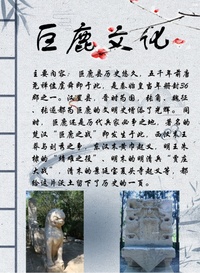 巨鹿文化
主要内容：巨鹿县历史悠久，五千年前唐
尧禅位虞舜即于此，是秦始皇当年册封36
郡之一。汉置县。黄时为国。张角、魏征
、张遂都为巨鹿的文明史增添了光辉。同
时，巨鹿还是历代兵家必争之地，著名的
楚汉"巨鹿之战"即发生于此。西汉末王
莽忌刘秀之事，东汉末黄巾起义，明王朱
棣的"靖难之役"，明末的明清兵"贾庄
大战"，清末的景廷宾聚义等起义等，都
给这片沃土留下了历史的一页。